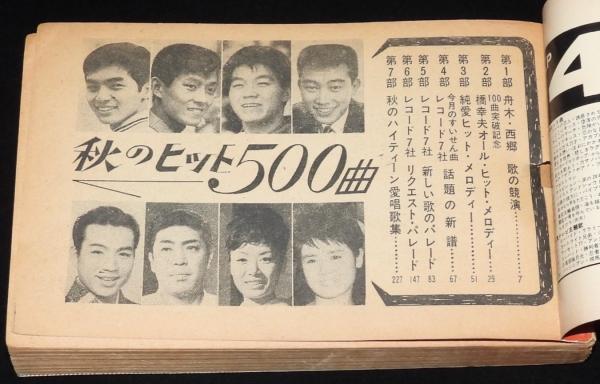 秋のヒット500曲
第1部 舟木・西郷 歌の競演………7
100曲突破記念
第2部 橋幸夫オール・ヒット・メロディー…29
第3部 純愛ヒット・メロディー………51
今月のすいせん曲
第4部 レコード7社 話題の新譜………67
第5部 レコード7社 新しい歌のパレード 83
第6部 レコード7社 リクエスト・パレード 147
第7部 秋のハイティーン愛唱歌集………227
P
A